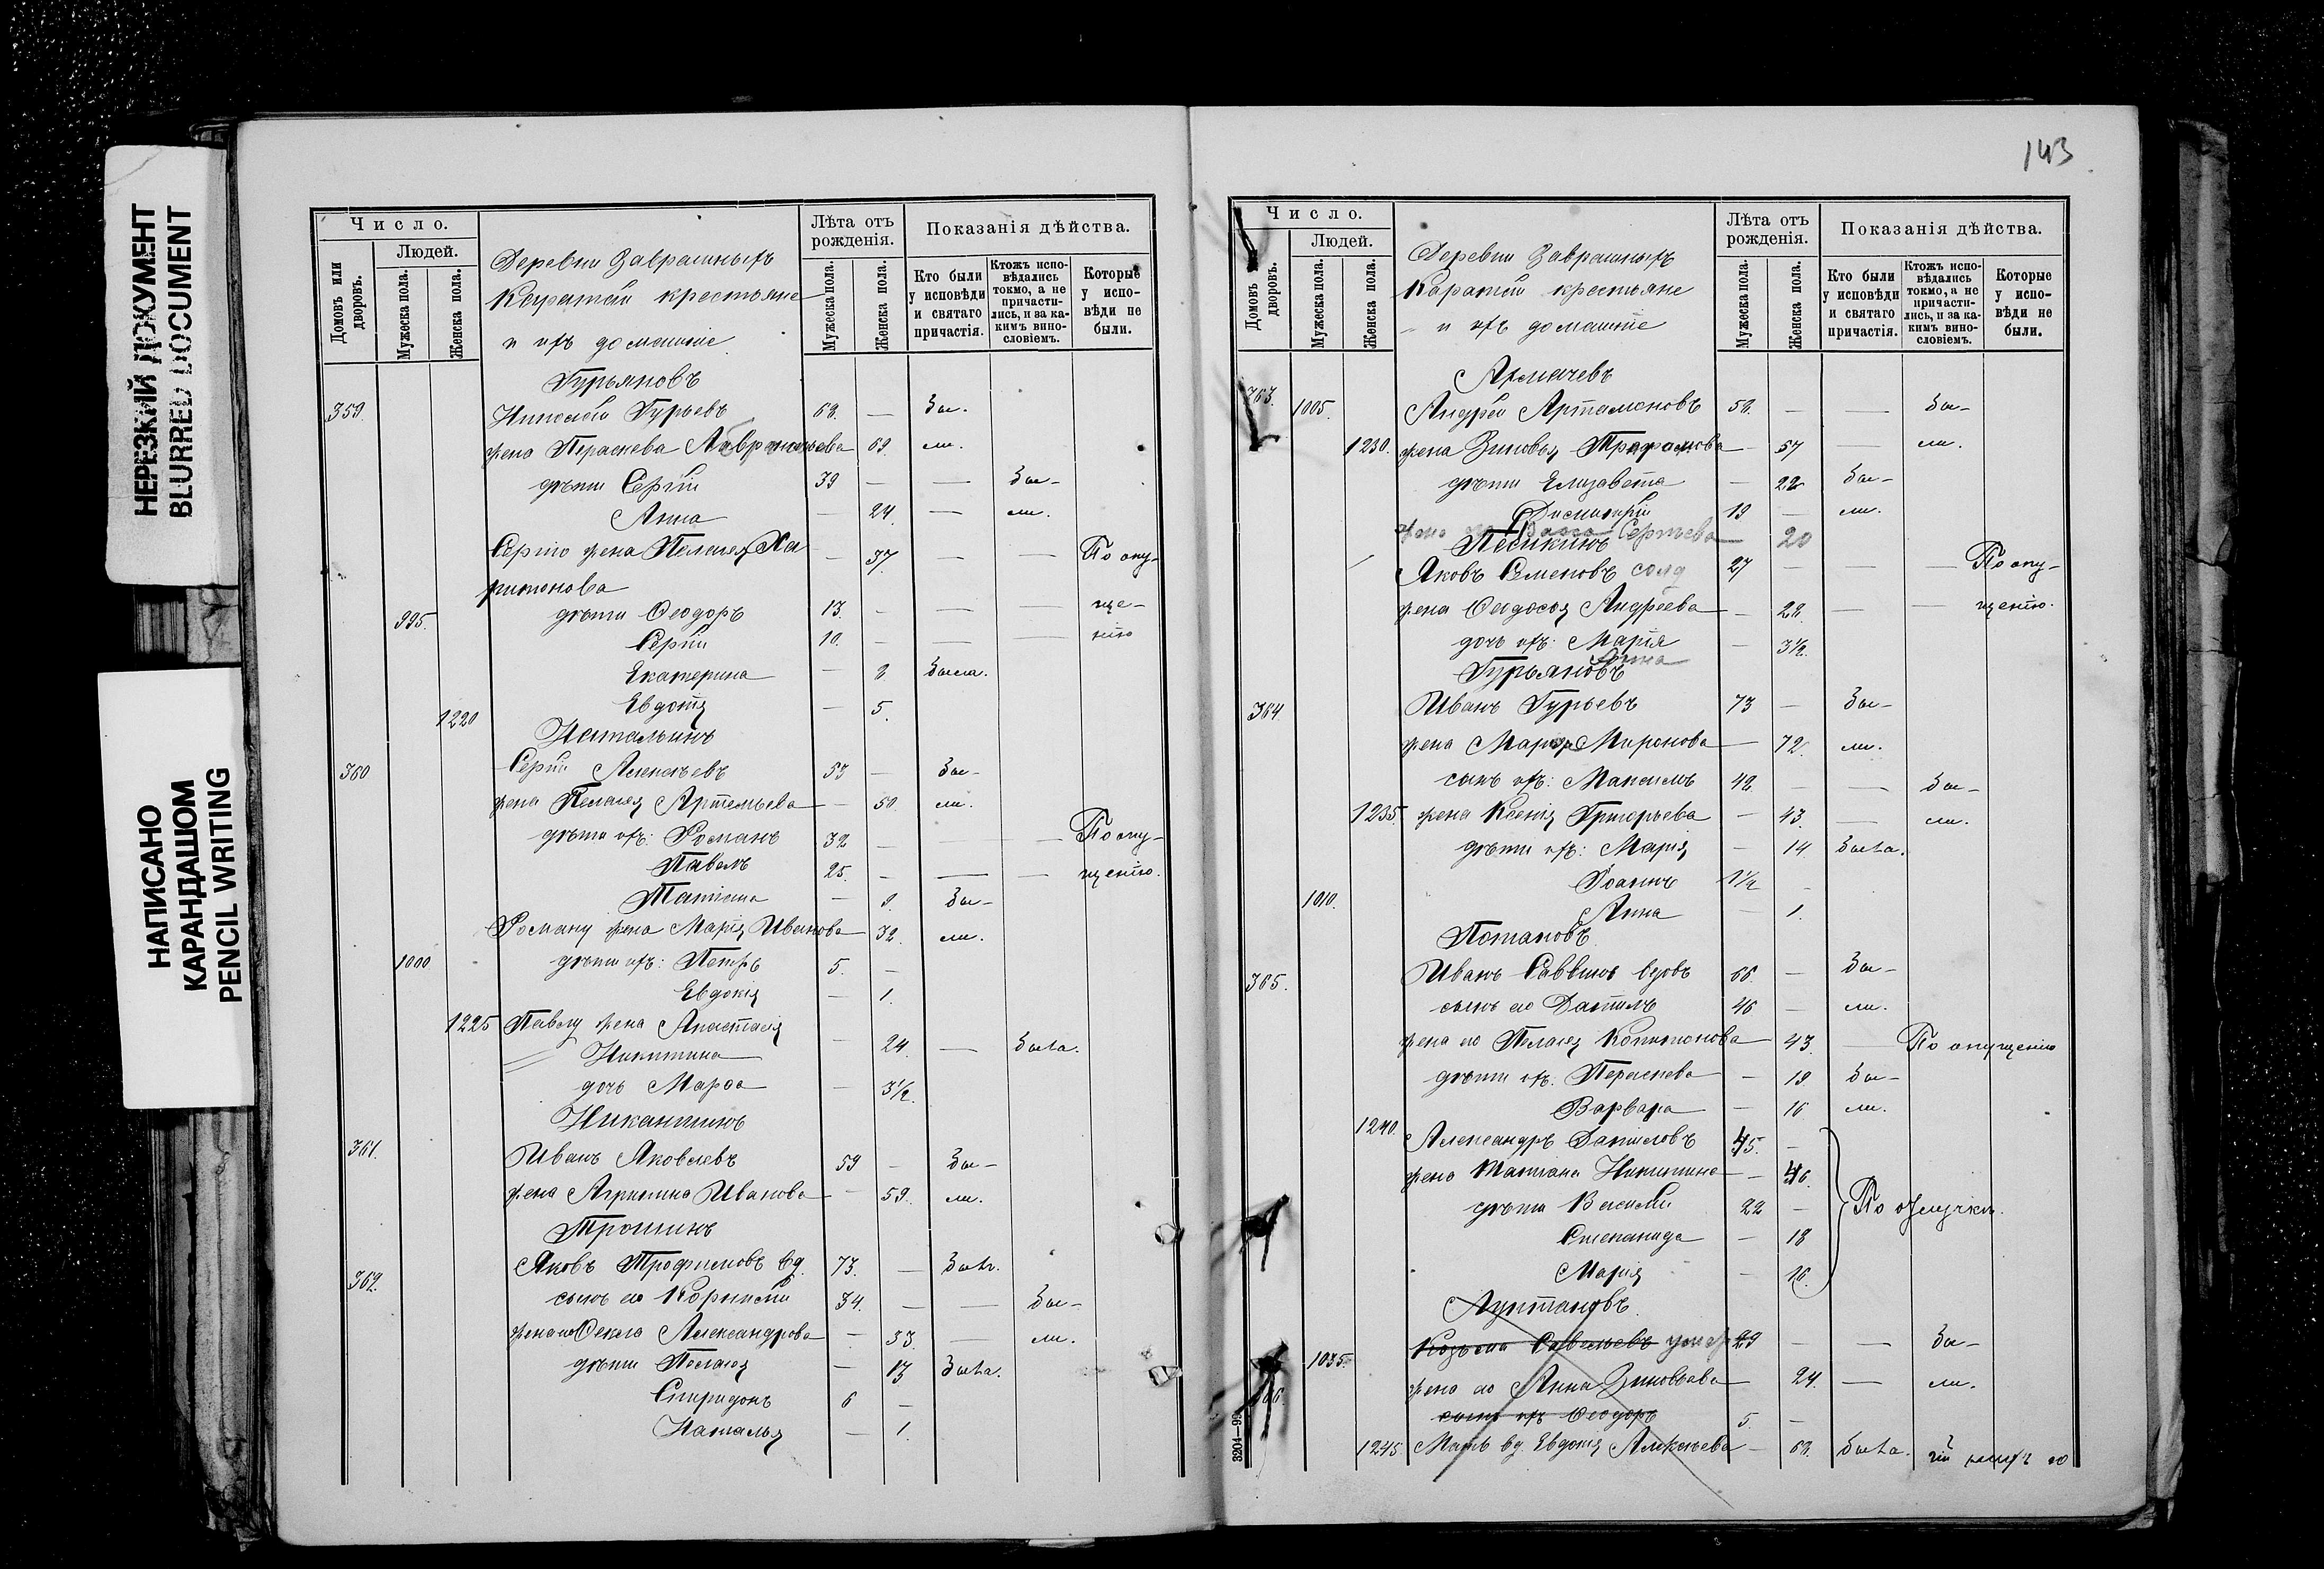 НЕРЕЗКИЙ ДОКУМЕНТ
BLURRED DOCUMENT
НАПИСАНО
КАРАНДАШОМ
PENCIL WRITING
Число.
Людей.
Домовъ или дворовъ.
Мужеска пола.
Женска пола.
Деревни Заврашныхъ
Каратай крестьяне
и ихъ домашніе
Лѣта отъ рожденія.
Мужеска пола.
Женска пола.
Показанія дѣйства.
Кто были у исповѣди и святаго причастія.
Ктожъ исповѣдались токмо, а не причастились, и за какимъ винословіемъ.
Которые у исповѣди не были.
Гурьяновъ
359. Николай Гурьевъ 68. — Бы-
жена Параскева 69. ли.
дѣти Сергій 39 — — Бы-
Анна — 24. — ли.
Сергію жена Пелагея Ха — 37. — — По опу-
ритонова
995. дѣти Ѳеодоръ 13. — — — ще-
Сергій 10. — — — нію
Екатерина — 8 Была.
1220 Евдокія — 5.
Натальинъ
360 Сергій Алексѣевъ 53 — Бы-
жена Пелагея Артемьева — 50. ли.
дѣти ихъ: Романъ 32 — — — По опу-
Павелъ 25. — — — щенію.
Татіана — 9. Бы-
Роману жена Марія Иванова 32. ли.
1000 дѣти ихъ: Петръ 5. —
Евдокія — 1.
1225 Павлу жена Анастасія
Никитина — 24. — Была.
дочь Марѳа — 3½.
Никаншинъ
361. Иванъ Яковлевъ 59 — Бы-
жена Агрипина Иванова — 59. ли.
Трошинъ
362. Яковъ Трофимовъ вд. 73. — Былъ.
сынъ его Корнилій 34. — — Бы-
жена его Ѳекла Александрова — 33. — ли.
дѣти Пелагея — 13 Была.
Спиридонъ 6 —
Наталья — 1.
143
Число.
Людей.
Домовъ дворовъ.
Мужеска пола.
Женска пола.
Деревни Заврашныхъ
Каратай крестьяне
и ихъ домашніе
Лѣта отъ рожденія.
Мужеска пола.
Женска пола.
Показанія дѣйства.
Кто были у исповѣди и святаго причастія.
Ктожъ исповѣдались токмо, а не причастились, и за какимъ винословіемъ.
Которые у исповѣди не были.
363. 1005. Андрей Артамоновъ 58. — — Бы-
1230. жена Зиновья — 57 — ли.
дѣти Елизавета — 22 Бы-
Димитрій 19 — ли.
жена Сергѣева 20
Песикинъ
Яковъ Семеновъ солд 27 — — — По опу-
жена Ѳеодосія Андреева — 28. — — щенію.
дочь ихъ: Марія — 3½.
Анна
Гурьяновъ
364 Иванъ Гурьевъ 73 — Бы-
жена Миронова — 72. ли.
сынъ ихъ: Максимъ 48. — — Бы-
1235. жена Ксенія Григорьева — 43. — ли.
дѣти ихъ: Марія — 14. Была.
1010. Іоаннъ 1½ —
Анна — 1.
Потаповъ
365. Иванъ Саввинъ вдовъ 66. — Бы-
сынъ его Даніилъ 46 — ли.
жена его Пелагея Капитонова 43. — По опущенію
дѣти их. Параскева — 19 Бы-
1240. Варвара — 16 ли.
Александръ Даниловъ 45. —
жена Татіана Никитина — 46.
дѣти Василій 22 —
По отлучкѣ.
Степанида — 18
Марія — 16.
366. 1035. Козьма Савельевъ умер 29 — — Бы-
жена его Анна Зиновьева 24. — ли.
сынъ ихъ Ѳеодоръ 5. —
1245. Мать вд. Евдокія Алексѣева — 68. Была.
3204—95